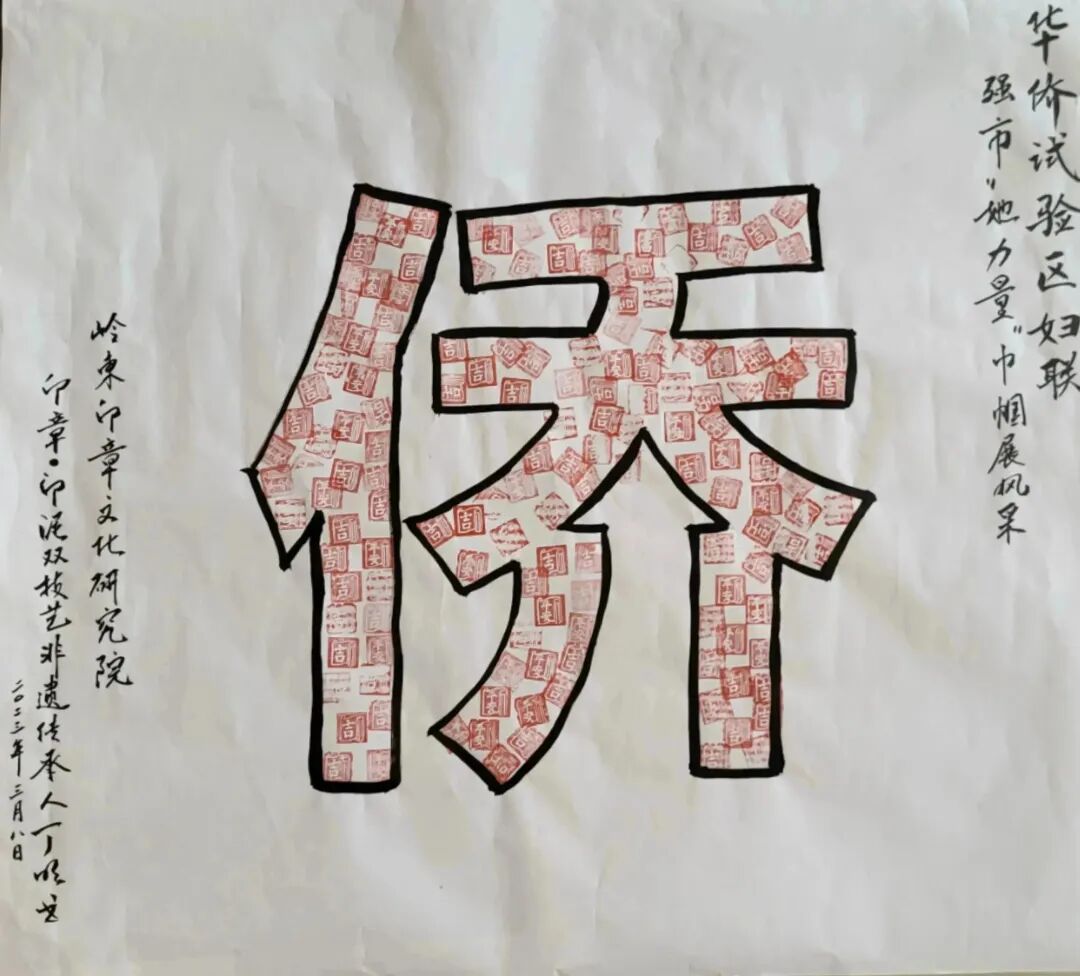 华侨试验区妇联
强市“她力量”巾帼展风采
侨
岭东印章文化研究院
印章·印泥双技艺非遗传承人丁
二〇二三年三月八日